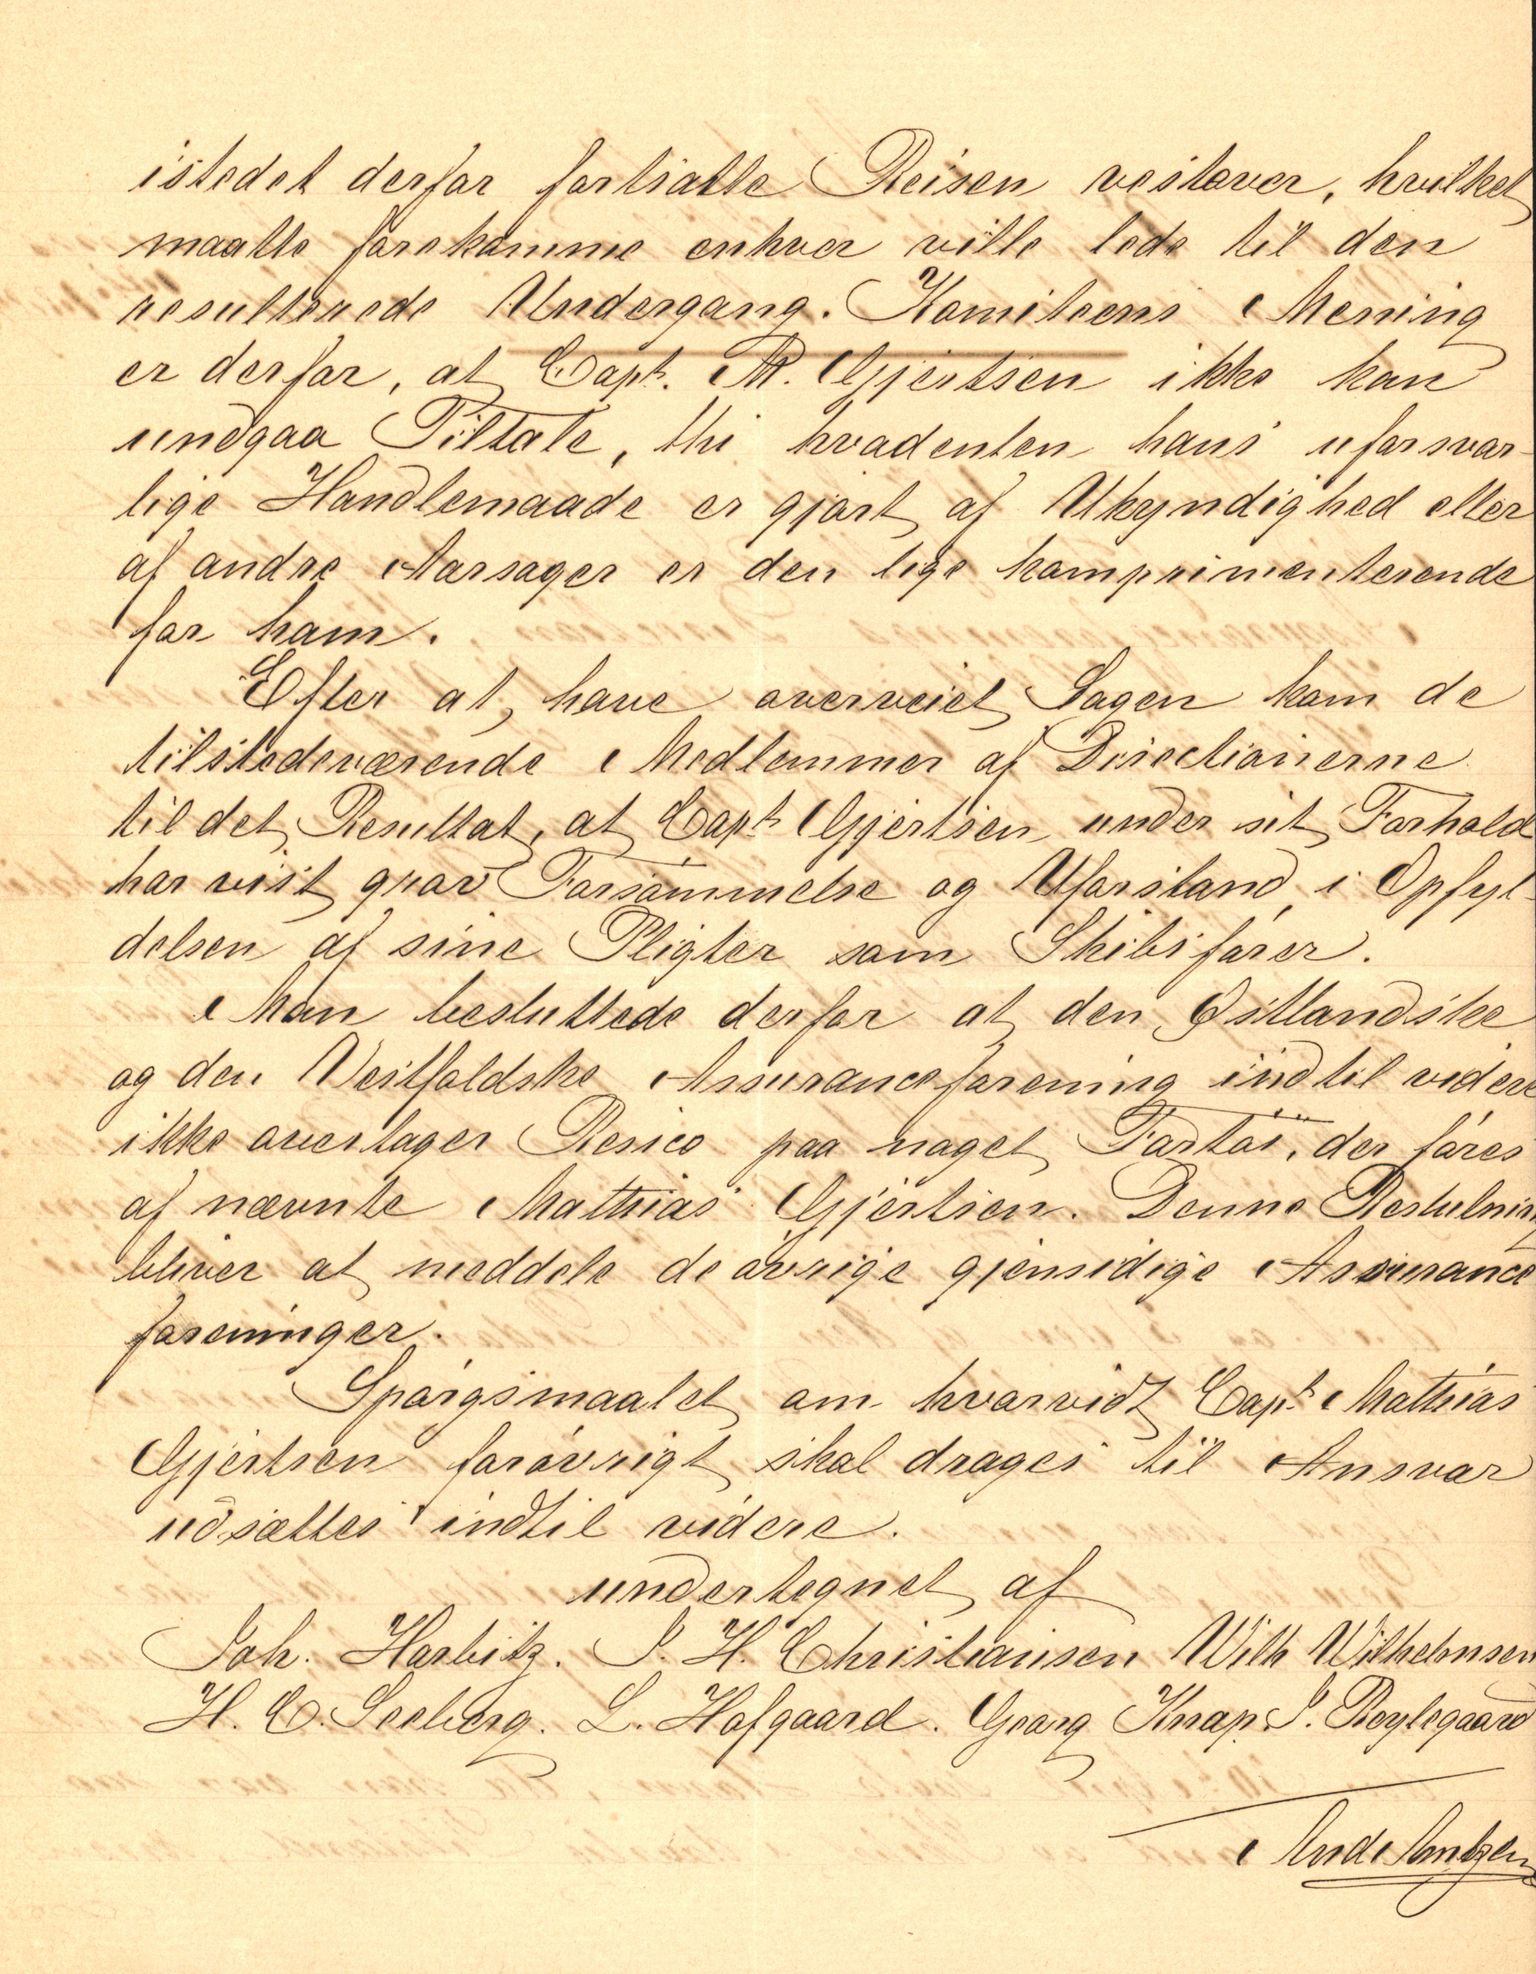 istedet derfor fortsatte Reisen vestover, hvilket
maatte forekomme enhver ville lede til den
resulterede Undergang. Komiteens Mening
er derfor, at Capt. M. Gjertsen ikke kan
undgaa Tiltale, thi hvadenten hans uforsvar-
lige Handlemaade er gjort af Ukyndighed eller
af andre Aarsager er den lige komprimenterende
for ham.
Efter at have overveiet Sagen kom de
tilstedeværende Medlemmer af Directionerne
til det Resultat, at Capt Gjertsen under sit Forhold
har vist grov Forsømmelse og Uforstand i Opfyl-
delsen af sine Pligter som Skibsfører.
Man besluttede derfor at den Østlandske
og den Vestfoldske Assuranceforening indtil videre
ikke overtager Resico paa noget Fartøi, der føres
af nævnte Mathias Gjertsen. Denne Beslutning
bliver at meddele de øvrige gjensidige Assurance
foreninger.
Spørgsmaalet om hvorvidt Capt. Mathias
Gjertsen forøvrigt skal drages til Ansvar
udsættes indtil videre.
undertegnet af
Joh. Harbitz. J. H. Christiansen Wilh Wilhelmsen
H. C. Seeberg. L. Hofgaard. Georg Knap. J. Røylegaard
And Arntzen